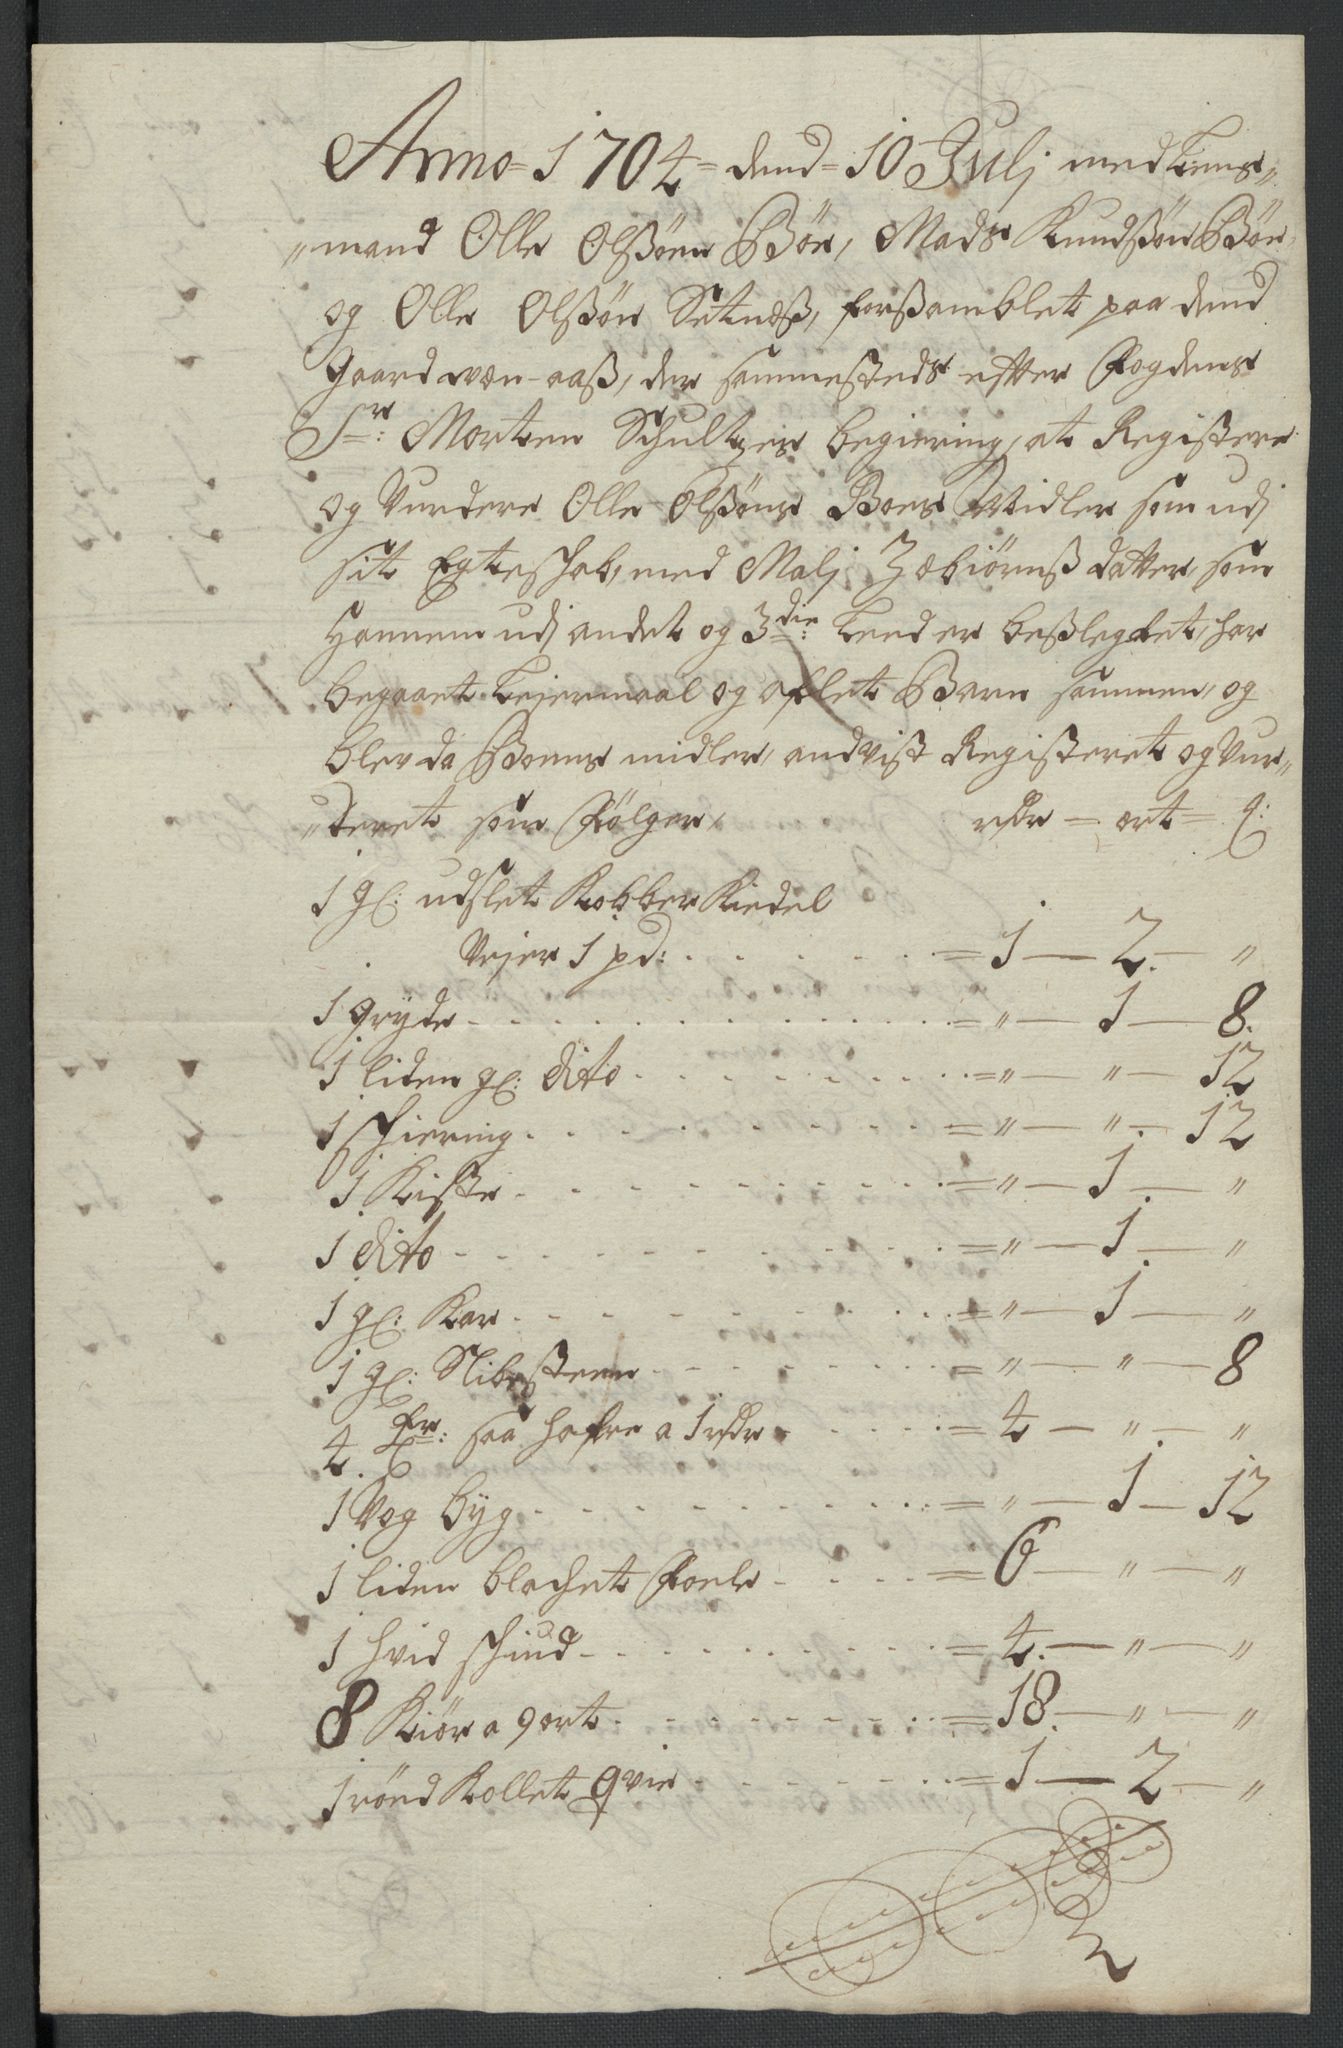 Anno = 1704 = dend = 10 Julj med Lens„
„mand Olle Olßøen Bøe, Mads Knudßøn Bøe,
og Olle Olßøn Setneß, forßamblet paa dend
gaard wen-aaß, der sammesteds efter Fogdens
Sr: Morten Schultzes begiering, at Registere
og Vurdere Olle Olßøns Boes Midler som udj
sit Egteschab, med Malj Zebiørnß datter, som
hannem udj andet og 3die: Leed er beßlegtet, har
begaaet Leiermaal og aflet Barn sammen, og
blev da Boens midler, andvist Registeret og Vur„
„deret som følger, rdr = ort = ß:
1 gl: udslet Kobber Kiedel
Vejer 1 pd: . . . . . = 1 — 2. — „
1 gryde - . . . . . = „ — 1 — 8.
1 liden gl: dito . . . . . = „ — „ — 12
1 schiering . . . . . = „ — „ — 12
1 Kiste . . . . . = „ — 1. — „
1 dito . . . . . = „ — 1. — „
1 gl: Kar . . . . . = „ — 1 — „
1 gl: Slibesteen . . . . . = „ — „ — 8
4. tr: saa hafre a 1 rdr . . . . . = 4 — „ — „
1 Vog byg . . . . . = „ — 1 — 12
1 liden blachet Foele . . . . . = 6 — „ — „
1 hvid schiud . . . . . = 4. — „ — „
8 Kiør a 9 ort . . . . . = 18. — „ — „
1 røed Kollet qvie . . . . . = 1 — 2. — „